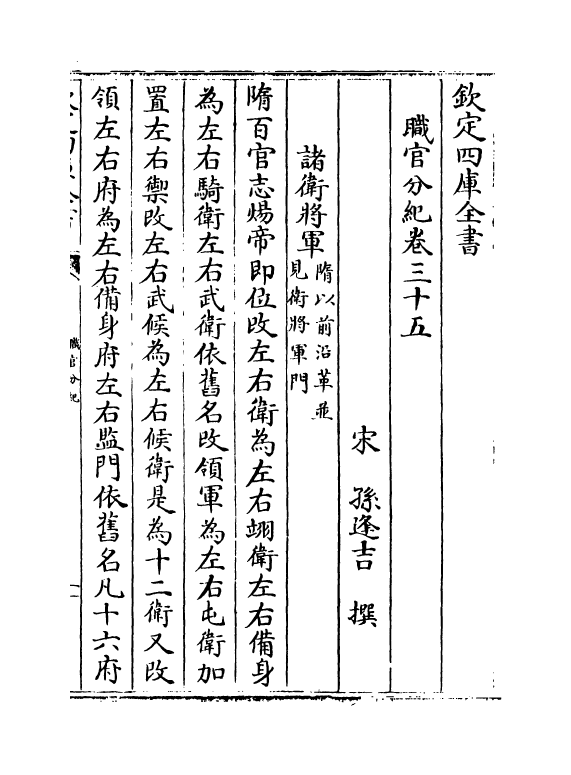 欽定四庫全書
職官分紀卷三十五
宋 孫逢吉 撰
諸衛將軍隋以前沿革並見衛將軍門
隋百官志煬帝即位改左右衛為左右翊衛左右備身
為左右騎衛左右武衛依舊名改領軍為左右屯衛加
置左右禦改左右武候為左右候衛是為十二衛又改
領左右府為左右備身府左右監門依舊名凡十六府
職官分紀
一